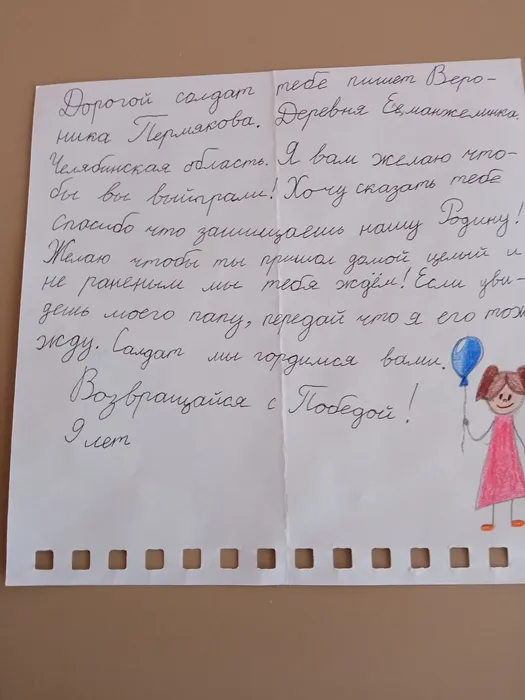 Дорогой солдат тебе пишет Веро-
ника Пермякова. Деревня Еманжелинка.
Челябинская область. Я вам желаю что-
бы вы выйграли! Хочу сказать тебе
Спасибо что защищаешь нашу Родину!
Желаю чтобы ты пришол домой целый и
не раненым мы тебя ждём! Если уви-
дешь моего папу, передай что я его тож
жду. Солдат мы гордимся вами.
Возвращайся с Победой!
9 лет